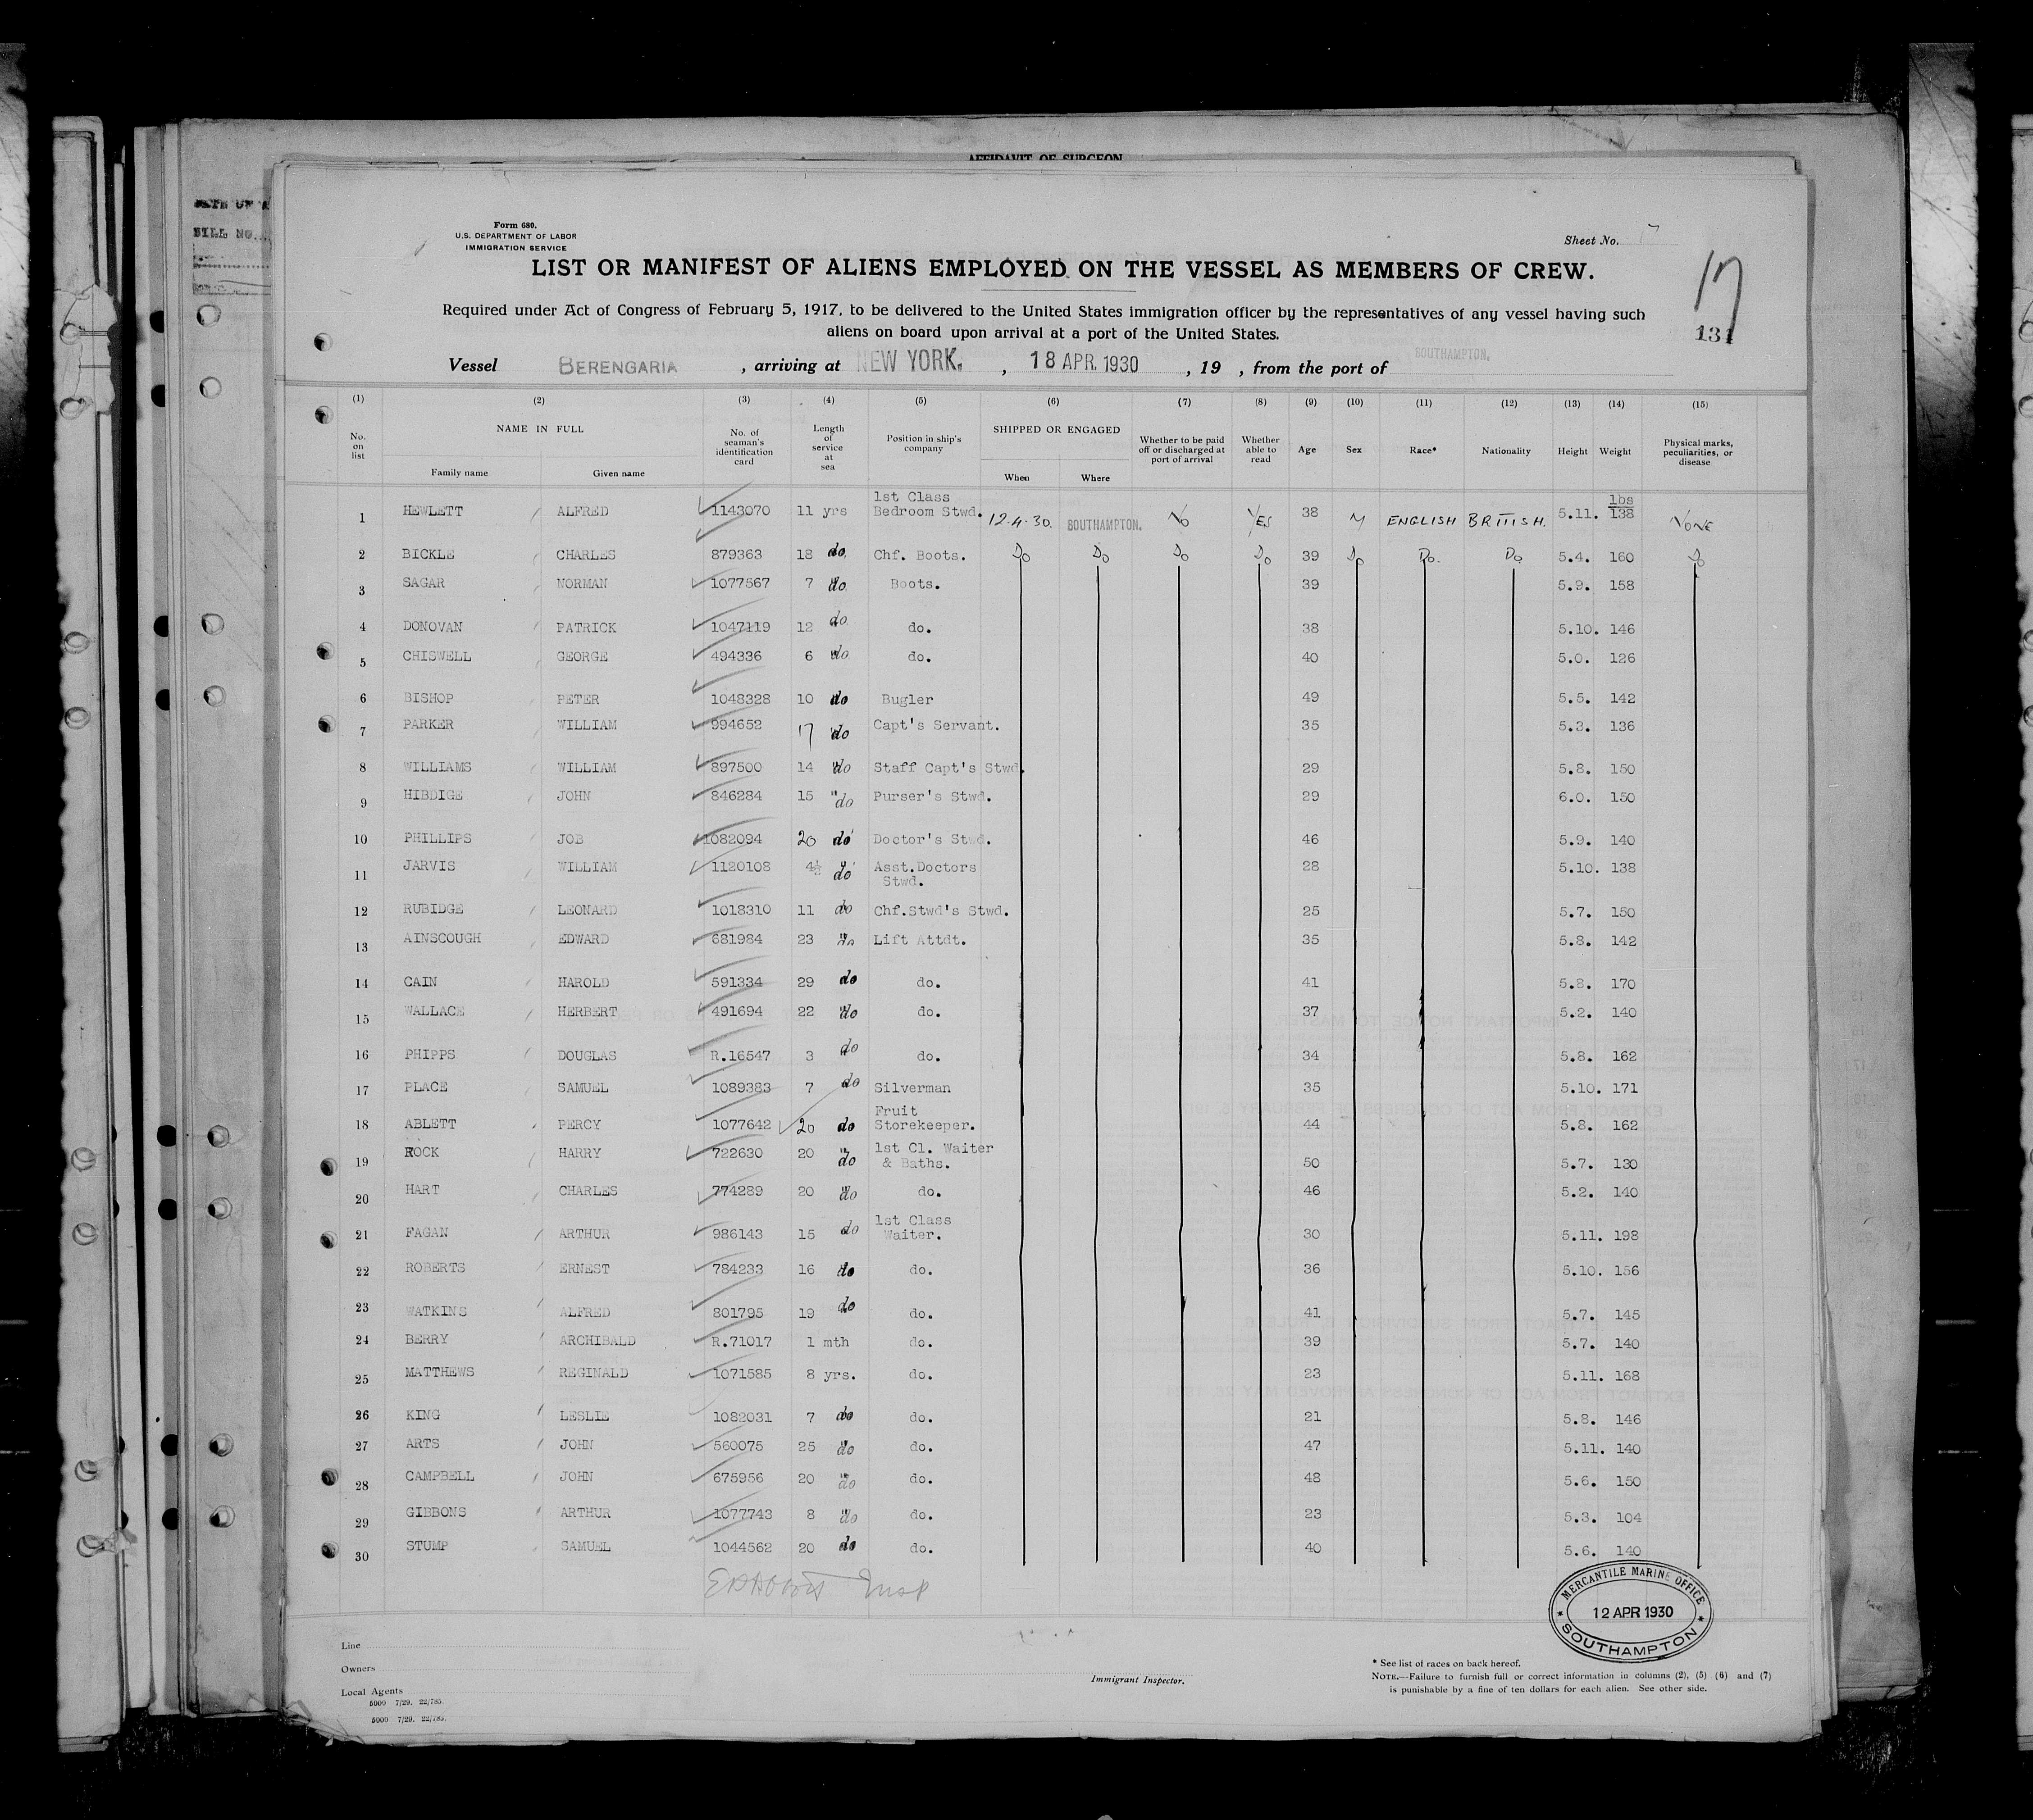 AFFIDAVIT OF SURGEON
BILL NO.
Form 680.
U.S. DEPARTMENT OF LABOR
IMMIGRATION SERVICE
Sheet No.
17
LIST OR MANIFEST OF ALIENS EMPLOYED ON THE VESSEL AS MEMBERS OF CREW.
Required under Act of Congress of February 5, 1917, to be delivered to the United States immigration officer by the representatives of any vessel having such
aliens on board upon arrival at a port of the United States.
131
Vessel BERENGARIA , arriving at NEW YORK. , 18 APR. 1930 , 19 , from the port of SOUTHAMPTON.
(1) (2) (3) (4) (5) (6) (7) (8) (9) (10) (11) (12) (13) (14) (15)
No. on list NAME IN FULL Family name Given name No. of seaman's identification card Length of service at sea Position in ship's company SHIPPED OR ENGAGED When Where Whether to be paid off or discharged at port of arrival Whether able to read Age Sex Race* Nationality Height Weight Physical marks, peculiarities, or disease
1 HEWLETT ALFRED 1143070 11 yrs 1st Class Bedroom Stwd. 12-4-30. SOUTHAMPTON. No YES 38 M ENGLISH BRITISH. 5.11. lbs 138 NONE
2 BICKLE CHARLES 879363 18 do. Chf. Boots. Do Do Do Do 39 Do Do. Do 5.4. 160 Do
3 SAGAR NORMAN 1077567 7 do. Boots. 39 5.9. 158
4 DONOVAN PATRICK 1047119 12 do. do. 38 5.10. 146
5 CHISWELL GEORGE 494336 6 do. do. 40 5.0. 126
6 BISHOP PETER 1048328 10 do Bugler 49 5.5. 142
7 PARKER WILLIAM 994652 17 do Capt's Servant. 35 5.3. 136
8 WILLIAMS WILLIAM 897500 14 do Staff Capt's Stwd. 29 5.8. 150
9 HIBDIGE JOHN 846284 15 do Purser's Stwd. 29 6.0. 150
10 PHILLIPS JOB 1082094 20 do Doctor's Stwd. 46 5.9. 140
11 JARVIS WILLIAM 1120108 4½ do Asst.Doctors Stwd. 28 5.10. 138
12 RUBIDGE LEONARD 1018310 11 do Chf.Stwd's Stwd. 25 5.7. 150
13 AINSCOUGH EDWARD 681984 23 do Lift Attdt. 35 5.8. 142
14 CAIN HAROLD 591334 29 do do. 41 5.8. 170
15 WALLACE HERBERT 491694 22 do do. 37 5.2. 140
16 PHIPPS DOUGLAS R.16547 3 do do. 34 5.8. 162
17 PLACE SAMUEL 1089383 7 do Silverman 35 5.10. 171
18 ABLETT PERCY 1077642 20 do Fruit Storekeeper. 44 5.8. 162
19 ROCK HARRY 722630 20 do 1st Cl. Waiter & Baths. 50 5.7. 130
20 HART CHARLES 774289 20 do do. 46 5.2. 140
21 FAGAN ARTHUR 986143 15 do 1st Class Waiter. 30 5.11. 198
22 ROBERTS ERNEST 784233 16 do do. 36 5.10. 156
23 WATKINS ALFRED 801795 19 do do. 41 5.7. 145
24 BERRY ARCHIBALD R.71017 1 mth do. 39 5.7. 140
25 MATTHEWS REGINALD 1071585 8 yrs. do. 23 5.11. 168
26 KING LESLIE 1082031 7 do do. 21 5.8. 146
27 ARTS JOHN 560075 25 do do. 47 5.11. 140
28 CAMPBELL JOHN 675956 20 do do. 48 5.6. 150
29 GIBBONS ARTHUR 1077743 8 do do. 23 5.3. 104
30 STUMP SAMUEL 1044562 20 do do. 40 5.6. 140
Insp
MERCANTILE MARINE OFFICE
12 APR 1930
SOUTHAMPTON
Line
Owners
Local Agents
5000 7/29. 22/785.
5000 7/29. 22/785.
Immigrant Inspector.
* See list of races on back hereof.
NOTE.—Failure to furnish full or correct information in columns (2), (5) (6) and (7)
is punishable by a fine of ten dollars for each alien. See other side.